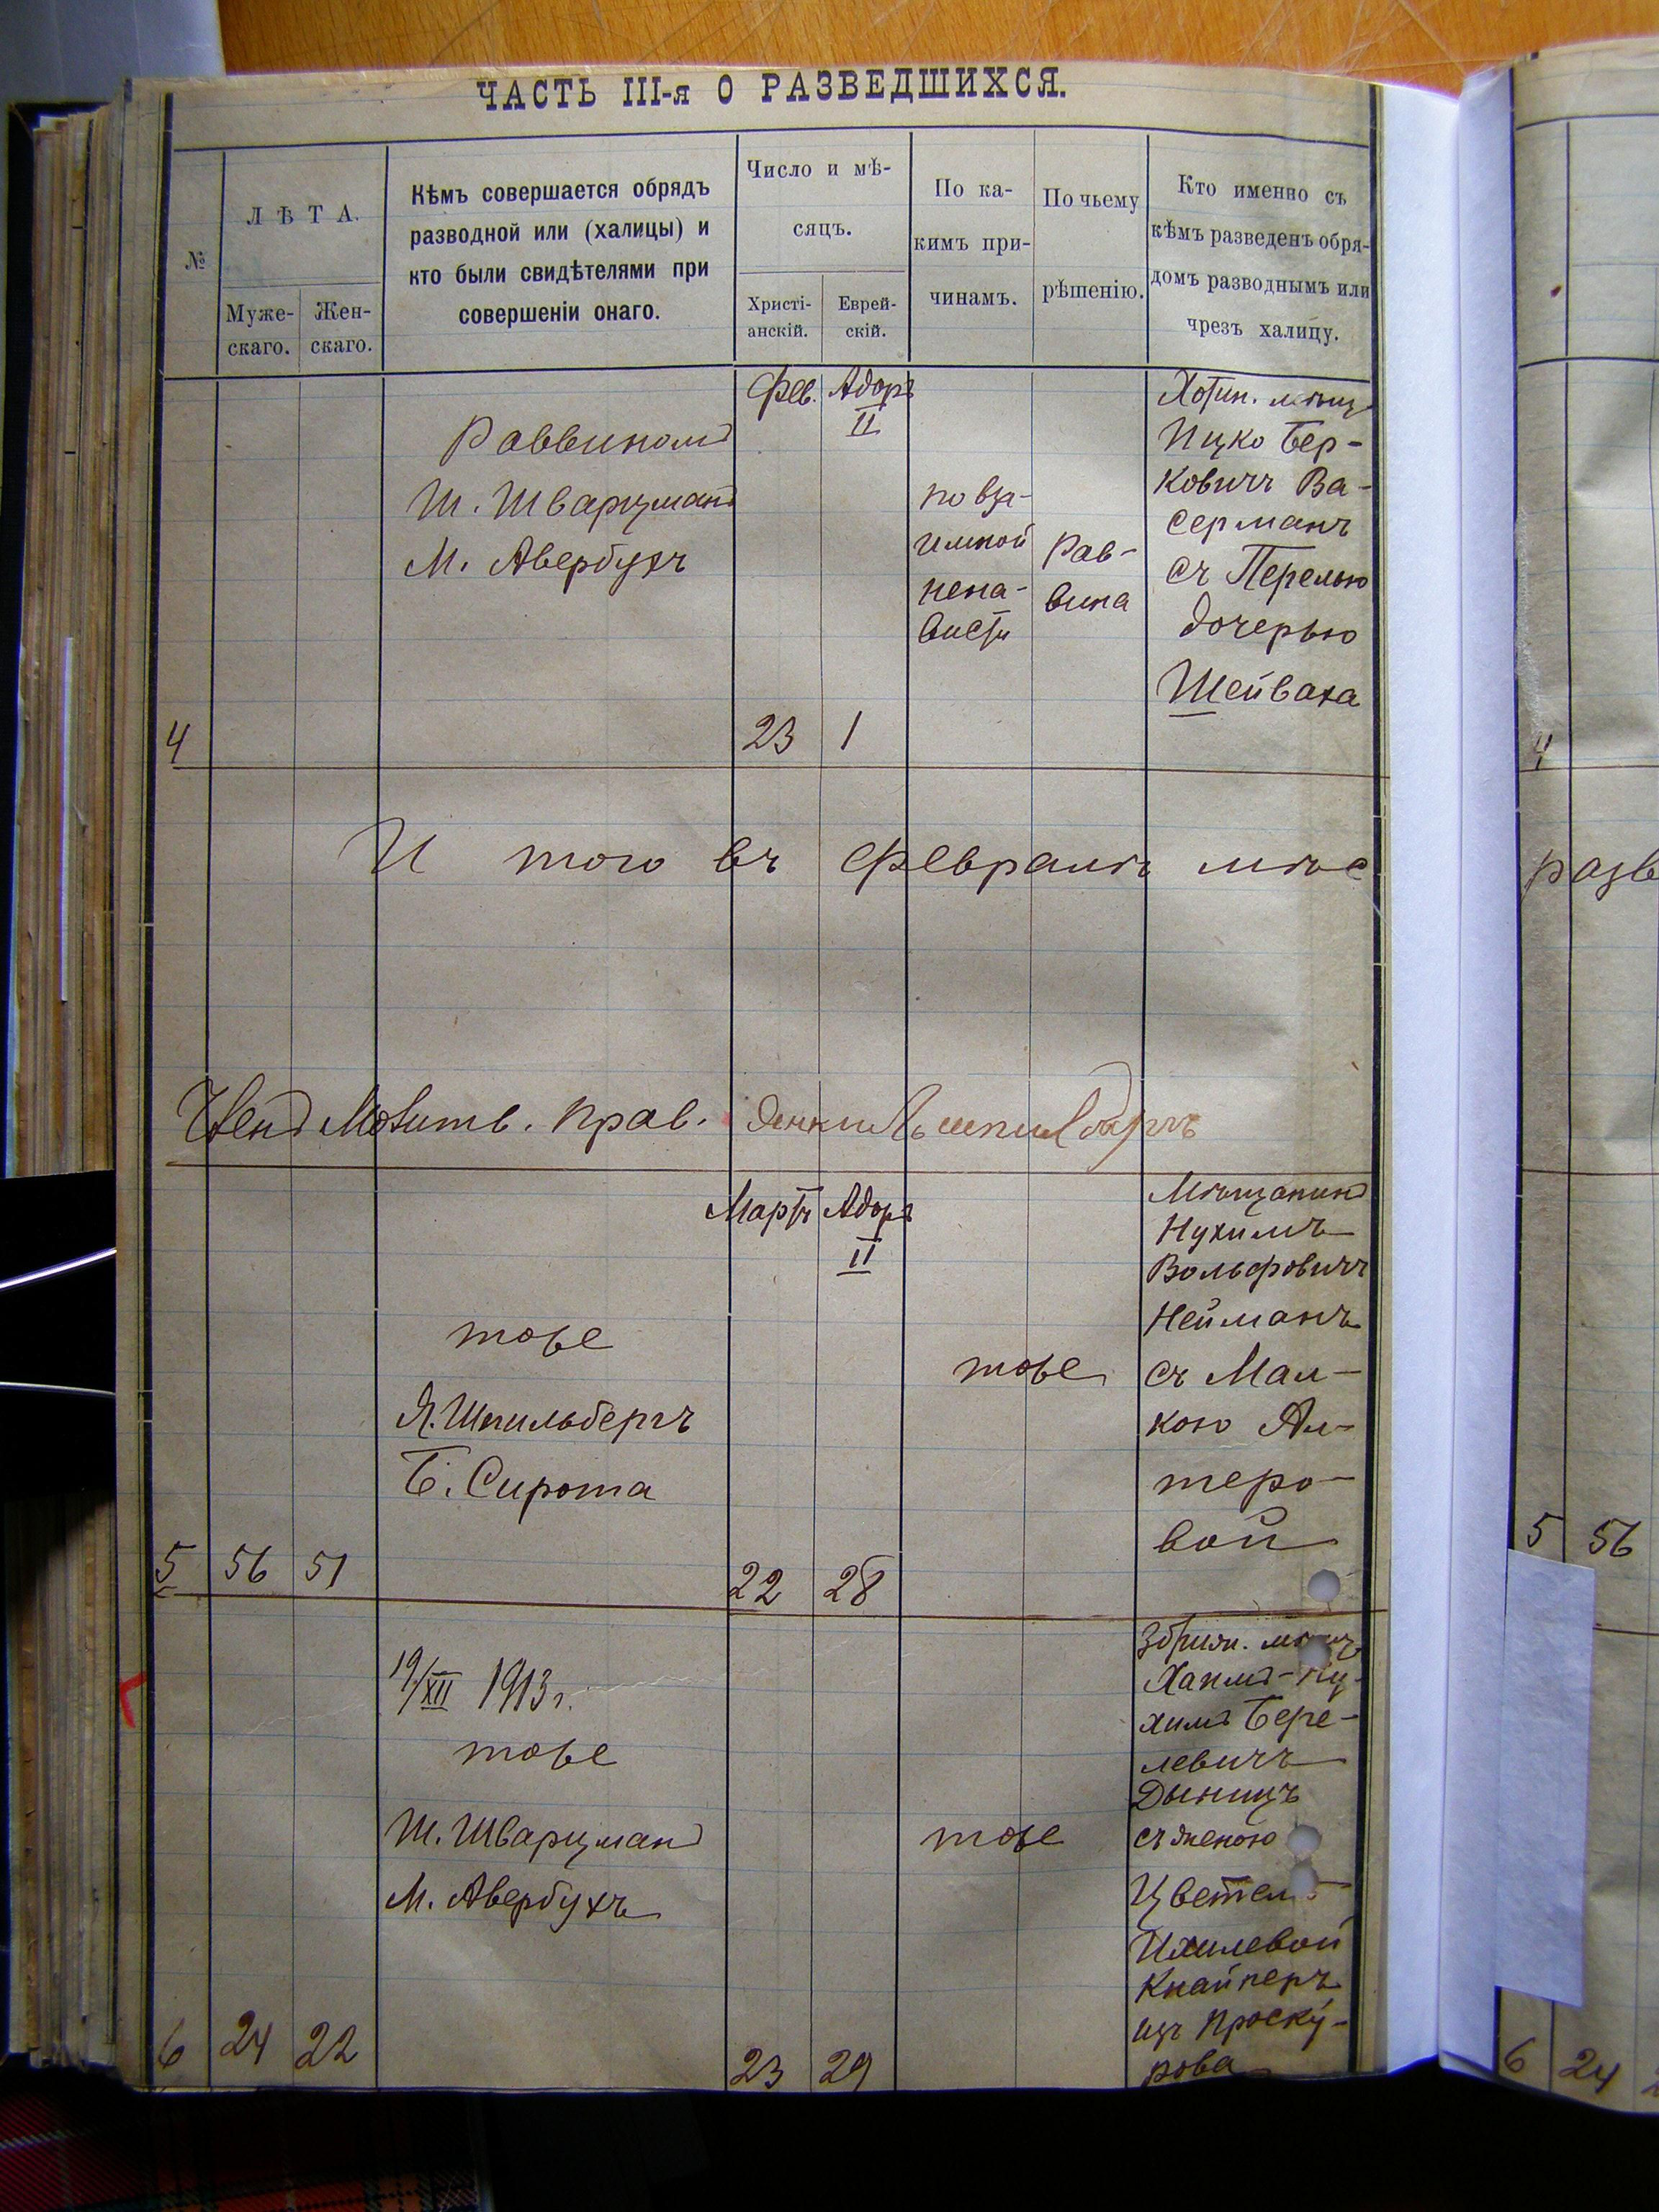 ЧАСТЬ III-я О РАЗВЕДШИХСЯ.
№
ЛѢТА.
Муже-
скаго.
Жен-
скаго.
Кѣмъ совершается обрядъ
разводной или (халицы) и
кто были свидѣтелями при
совершеніи онаго.
Число и мѣ-
сяцъ.
Христі-
анскій.
Еврей-
скій.
По ка-
кимъ при-
чинамъ.
По чьему
рѣшенію.
Кто именно съ
кѣмъ разведенъ обря-
домъ разводнымъ или
чрезъ халицу.
4
Раввиномъ
Ш. Шварцманъ
М. Авербухъ
Фев.
23
Адоръ
II
1
по вза-
имной
нена-
висти
Рав-
вина
Хотин. мѣщ.
Ицко Бер-
ковичъ Ва-
серманъ
съ Перелью
дочерью
Шейваха
И того въ Февралѣ мѣс
4
разв
Член Молитв. Прав.
5
56
51
тоже
Я. Шпильбергъ
Б. Сирота
Мартъ
22
Адоръ
II
28
тоже
Мѣщанинъ
Нухимъ
Вольфовичъ
Нейманъ
съ Мал-
кою Ал-
теро-
вой
5 56
6
24
22
19/XII 1913 г.
тоже
Ш. Шварцман
М. Авербухъ
23
29
тоже
Хаимъ-Ну-
химъ Бере-
левичъ
Дыницъ
съ женою
Ихилевой
Кнайперъ
изъ Проску-
рова
6 24